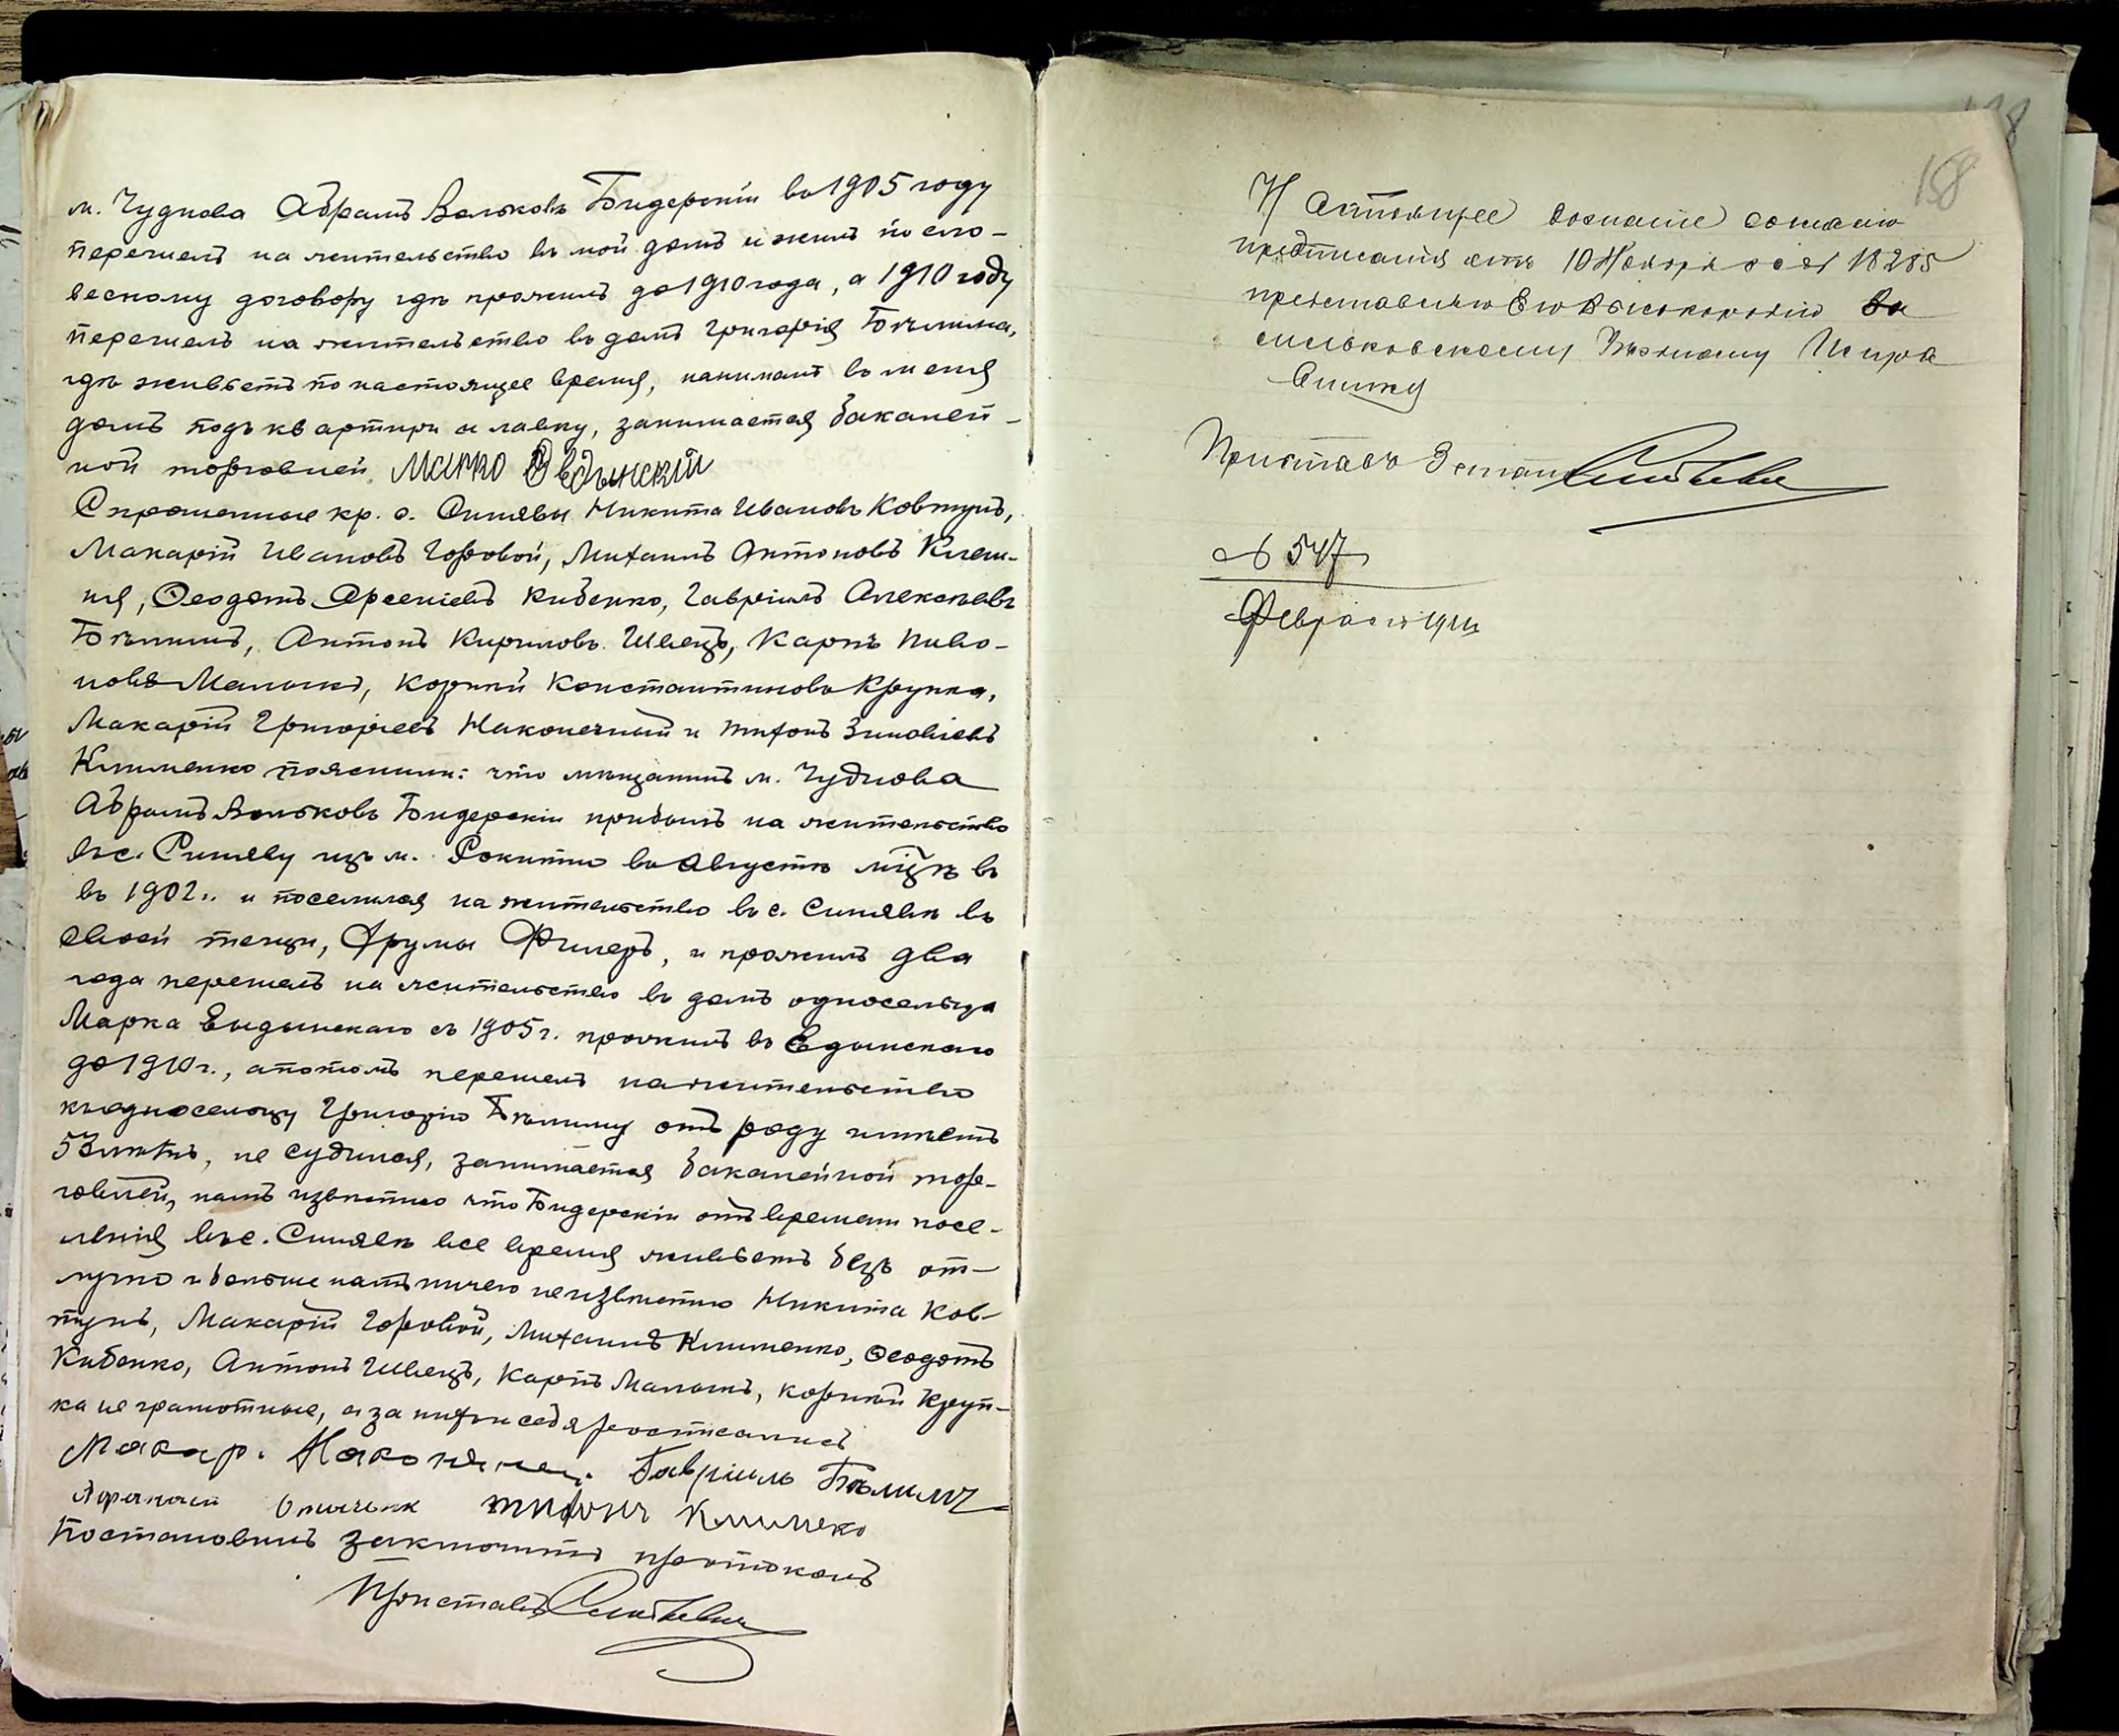 м. Чуднова Абрамъ Вольковъ Бидерскiй въ 1905 году
перешелъ на жительство въ мой домъ и жилъ по сло-
весному договору гдѣ прожилъ до 1910 года, а 1910 году
перешелъ на жительство въ домъ Григорiя Бѣлима,
гдѣ живветъ по настоящее время, нанималъ въ меня
домъ подъ квартири и лавку, занимается бакалей-
ной торговлей. Марко Овдынский
Спрошенные кр. с. Синявы Никита Ивановъ Ковтунъ,
Макарiй Ивановъ Горовой, Михаилъ Антоновъ Клеш-
ня, Ѳеодотъ Арсенiевъ Кибенко, Гаврiилъ Алексѣевъ
Бѣлимъ, Антонъ Кириловъ Швецъ, Карпъ Пиво-
новъ Малышъ, Корнiй Константиновъ Крупка,
Макарiй Григорiевъ Наконечный и Тифонъ Зиновiевъ
Клименко пояснили: что мѣщанинъ м. Чуднова
Абрамъ Вольковъ Бидерскiй прибылъ на жительство
въ с. Синяву изъ м. Рокитно въ Августѣ мѣцѣ въ
въ 1902 г. и поселился на жительство въ с. Синявѣ въ
своей тещи, Фрумы Филеръ, и проживъ два
года перешелъ на жительство въ домъ односельца
Марка Евдынскаго съ 1905 г. прожилъ въ Евдынскаго
до 1910 г., а потомъ перешелъ на жительство
къ односельцу Григорiю Бѣлиму отъ роду имѣетъ
53 лѣтъ, не судился, занимается бакалейной тор-
говлей, намъ извѣстно что Бидерскiй отъ времени посе-
ленiя въ с. Синявѣ все время живветъ безъ от-
лучно и больше намъ ничего неизвѣстно Никита Ков-
тунъ, Макарiй Горовой, Михаилъ Клименко, Ѳеодотъ
Кибенко, Антонъ Швецъ, Карпъ Малышъ, Корнiй Круп-
ка не грамотные, а за нихъ и себя росписались
Макар. Гаврiилъ Бѣлимъ
Тифонъ Клименко
Постановилъ заключить протоколъ
Приставъ
158
Настоящее дознанiе согласно
предписанiя отъ 10 Ноября за № 18285
представляю Его Высокородiю Ва
сильковскому Уѣздному Испра
внику
Приставъ 3 стана
№ 547
Февраля 1911